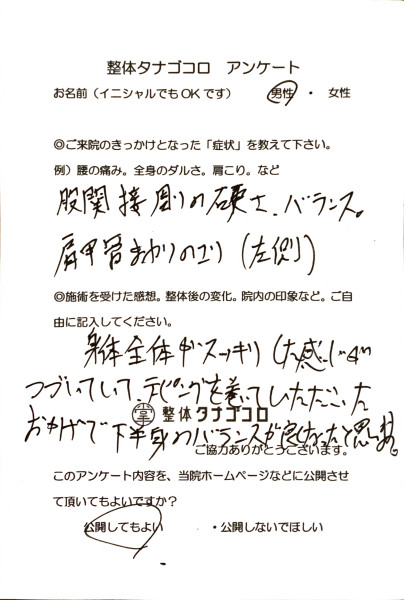 整体タナゴコロ アンケート
お名前(イニシャルでもOKです) 男性 ・ 女性
◎ご来院のきっかけとなった「症状」を教えて下さい。
例)腰の痛み。全身のダルさ。肩こり。など
股関接周りの硬さ、バランス。
肩甲骨まわりのコリ(左側)
◎施術を受けた感想。整体後の変化。院内の印象など。ご自
由に記入してください。
身体全体がスッキリした感じが
つづいていて、テーピングを巻いていただいた
整体タナゴコロ
おかげで下半身のバランスが良くなったと思います。
ご協力ありがとうございます。
このアンケート内容を、当院ホームページなどに公開させ
て頂いてもよいですか?
公開してもよい ・公開しないでほしい